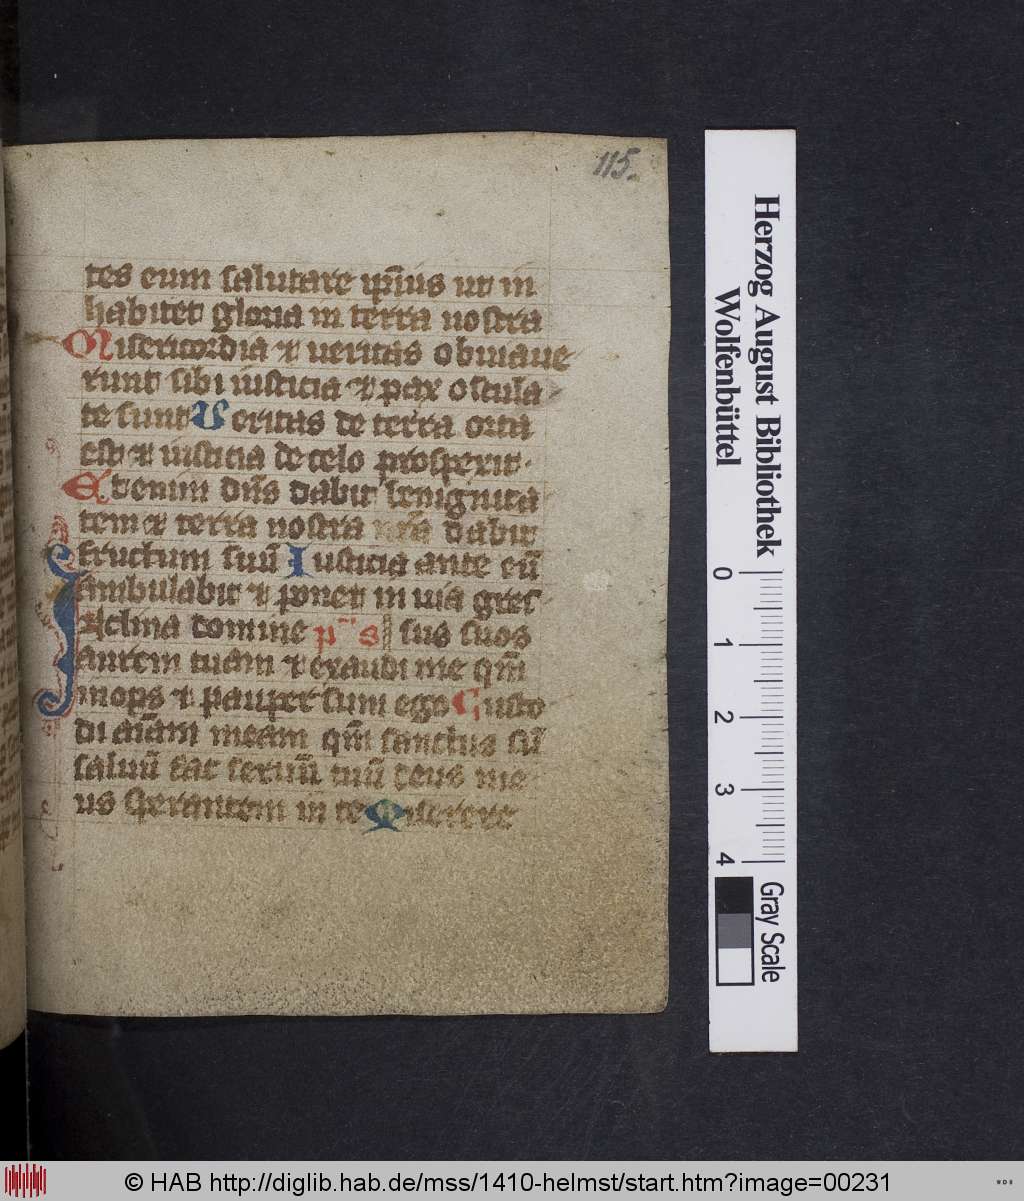 115.
tes eum salutare ip̅ius ut in
habitet gloria in terra nostra
Misericordia et ueritas obuiaue
runt sibi iusticia et pax oscula
te sunt Veritas de terra orta
est et iusticia de celo prosperit
Etenim dn̅s dabit benignita
tem et terra nostra dabit
fructum suu̅ Iusticia ante eu̅
ambulabit et ponet in uia gres
Inclina domine p̅s sus suos
aurem tuam et exaudi me qm̅
inops et pauper sum ego Custo
di a̅i̅am meam qm̅ sanctus su̅
saluu̅ fac seruu̅ tuu̅ deus me
us sperantem in te Miserere
Herzog August Bibliothek
Wolfenbüttel
0 1 2 3 4
Gray Scale
© HAB http://diglib.hab.de/mss/1410-helmst/start.htm?image=00231